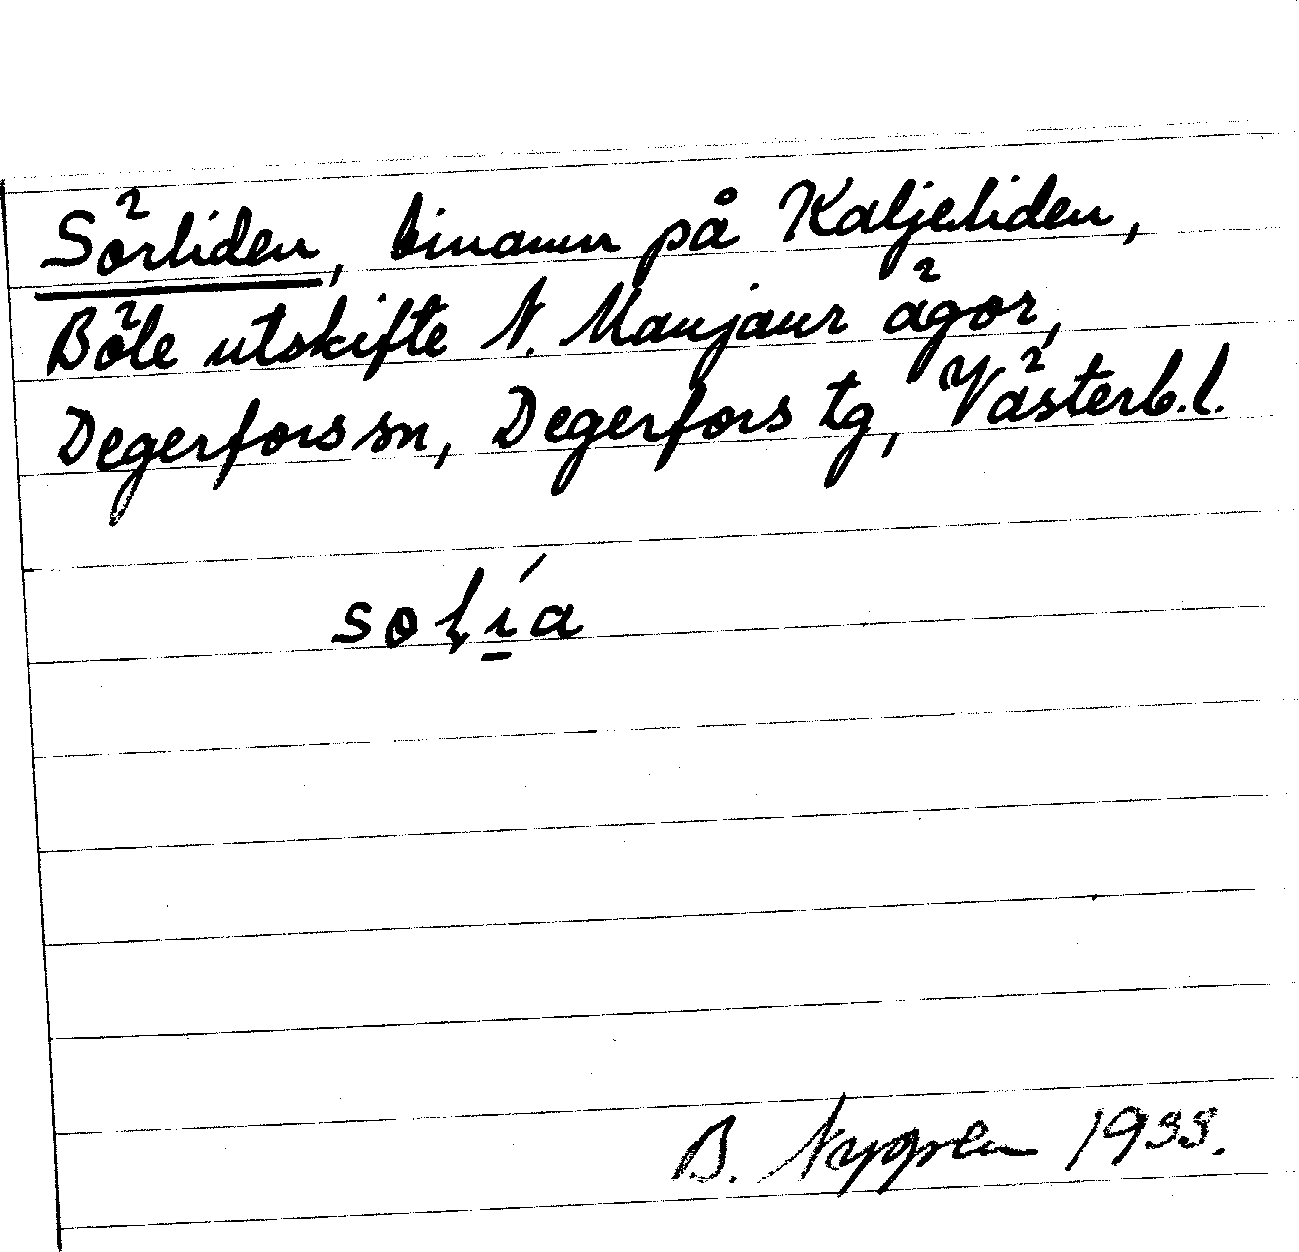 Sörliden, binamn på Kaljeliden,
Böle utskifte N. Manjaur ägor,
Degerfors sn, Degerfors tg, Västerb.l.
B. Nygren 1933.